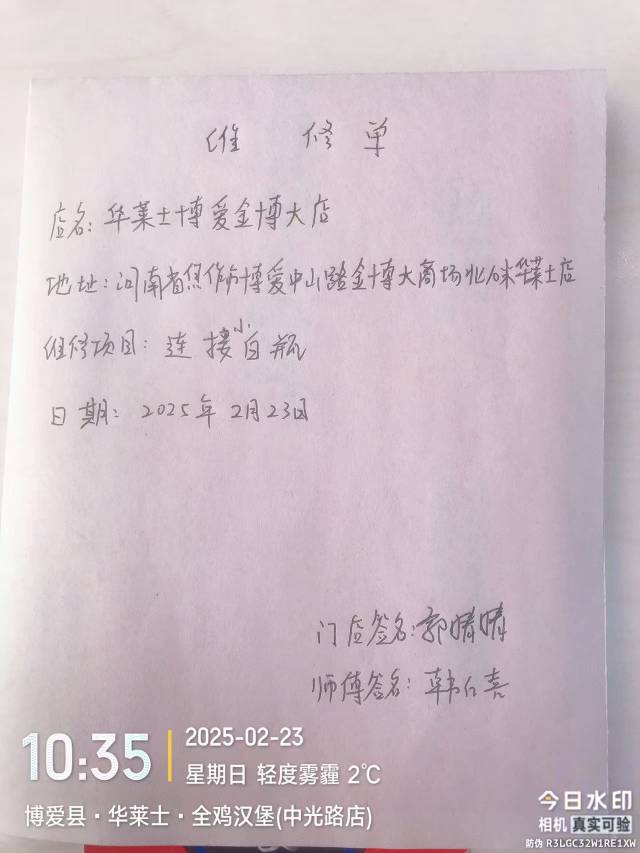 维修单
店名：华莱士博爱金博大店
地址：河南省焦作市博爱中山路金博大商场北门口华莱士店
维修项目：连接小白瓶
日期：2025年2月23日
门店签名：郭晴晴
师傅签名：韩仁喜
10:35
2025-02-23
星期日 轻度雾霾 2℃
博爱县·华莱士·全鸡汉堡(中光路店)
今日水印
相机 真实可验
防伪 R3LGC32W1RE1XW